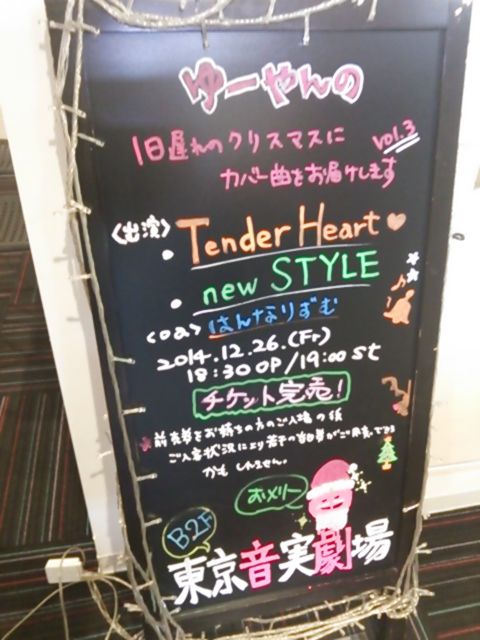 ゆーやんの
1日遅れのクリスマスに vol.3
カバー曲をお届けします
<出演>
・Tender Heart
・new STYLE
<OA> はんなりずむ
2014.12.26.(Fr)
18:30 OP/19:00 St
チケット完売!
★前売券をお持ちの方のご入場の後
ご入場状況により若干の当日券がご用意できる
かもしれません。
おメリー
B2F
東京音実劇場